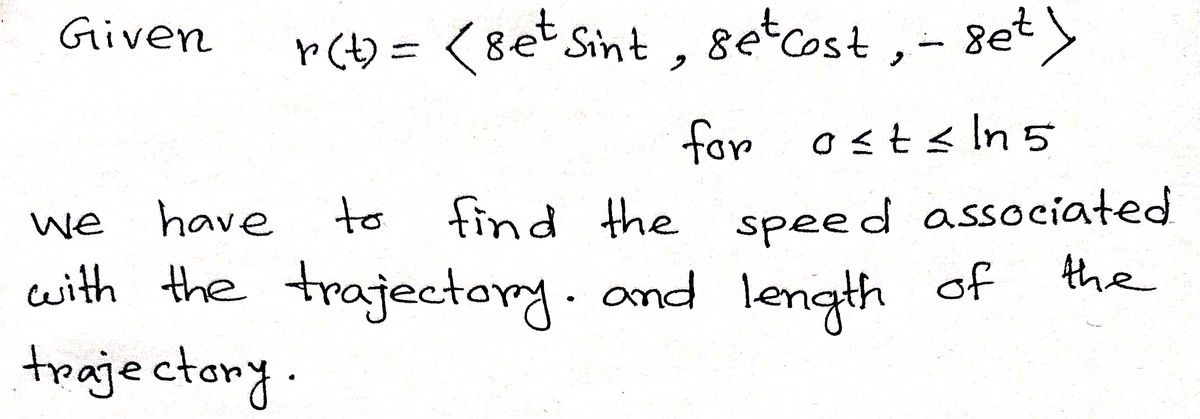 Given r(t) = <8e^t Sint , 8e^t Cost , - 8e^t>
for 0 ≤ t ≤ ln 5
we have to find the speed associated
with the trajectory. and length of the
trajectory.